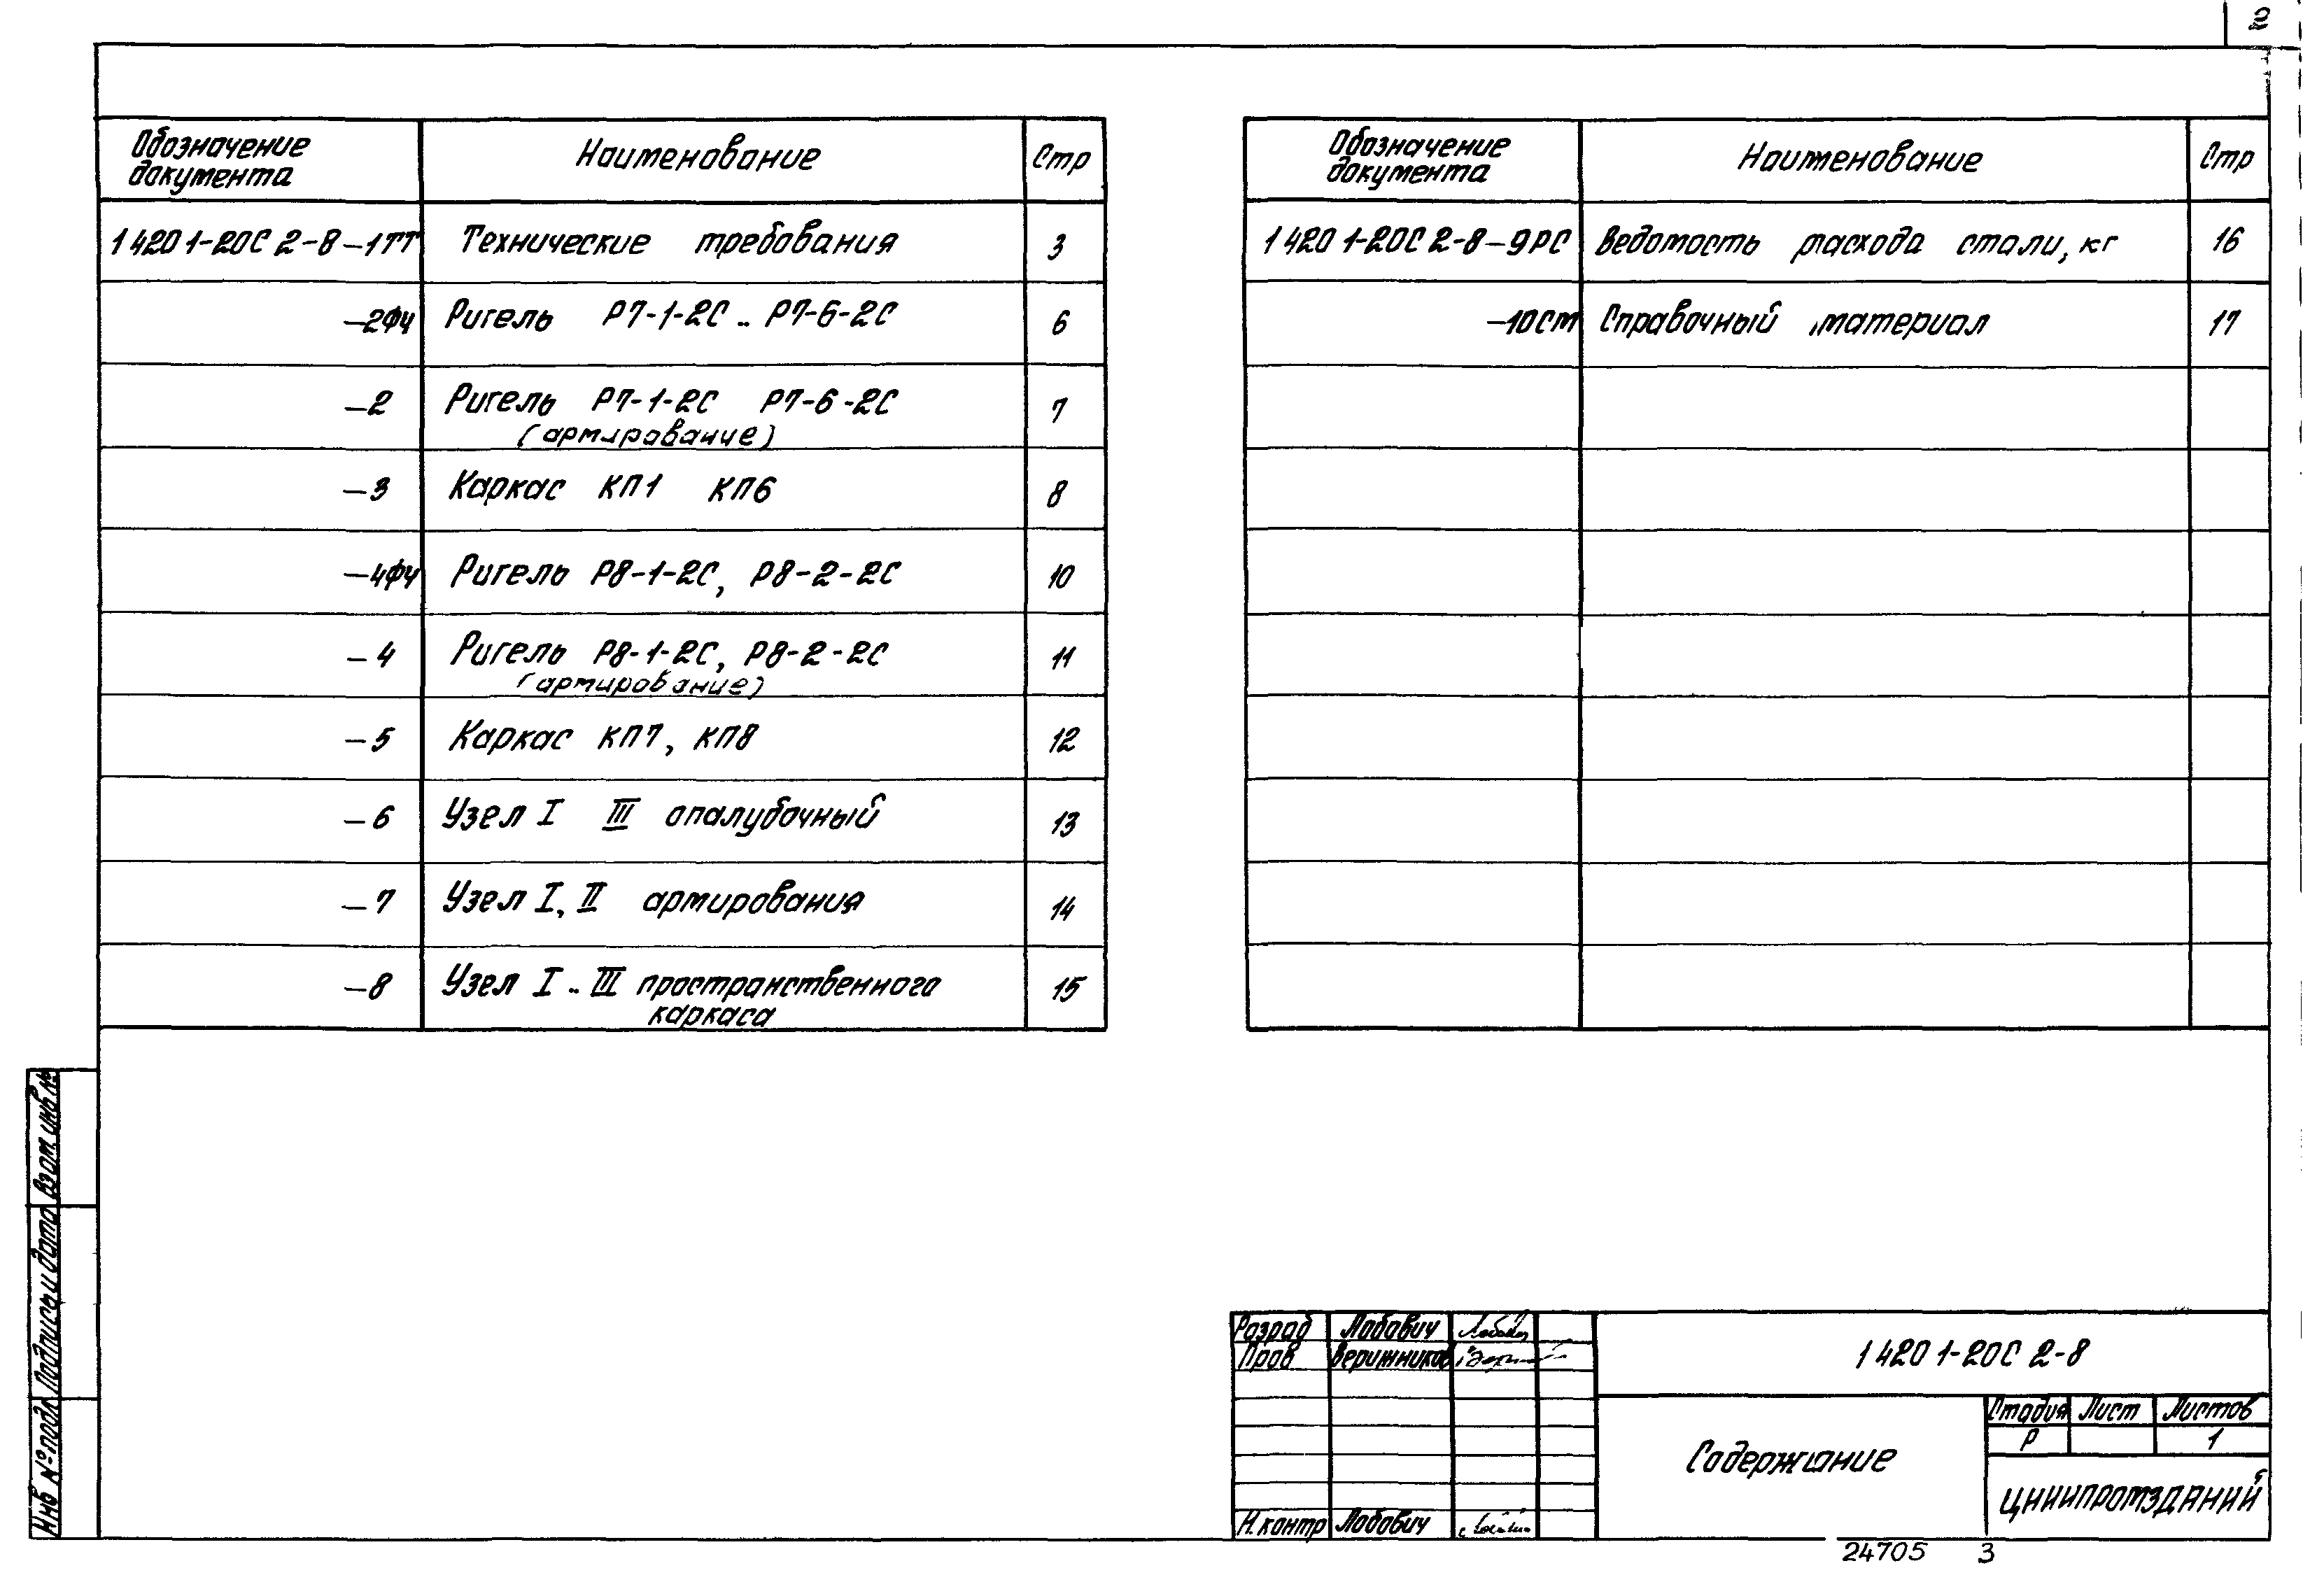 2
Обозначение документа Наименование Стр
1 420 1-20С 2-8-1ТТ Технические требования 3
-2ФЧ Ригель Р7-1-2С .. Р7-6-2С 6
-2 Ригель Р7-1-2С Р7-6-2С 7
(армирование)
-3 Каркас КП1 КП6 8
-4ФЧ Ригель Р8-1-2С, Р8-2-2С 10
-4 Ригель Р8-1-2С, Р8-2-2С 11
(армирование)
-5 Каркас КП7, КП8 12
-6 Узел I III опалубочный 13
-7 Узел I, II армирования 14
-8 Узел I .. III пространственного 15
каркаса
Обозначение документа Наименование Стр
1 420 1-20С 2-8-9РС Ведомость расхода стали, кг 16
-10СМ Справочный материал 17
Взам. инв №
Подпись и дата
Инв № подл
Разраб Лобович
Пров Верижников
Н. контр Лобович
1 420 1-20С 2-8
Содержание
Стадия Лист Листов
Р 1
ЦНИИПРОМЗДАНИЙ
24705 3